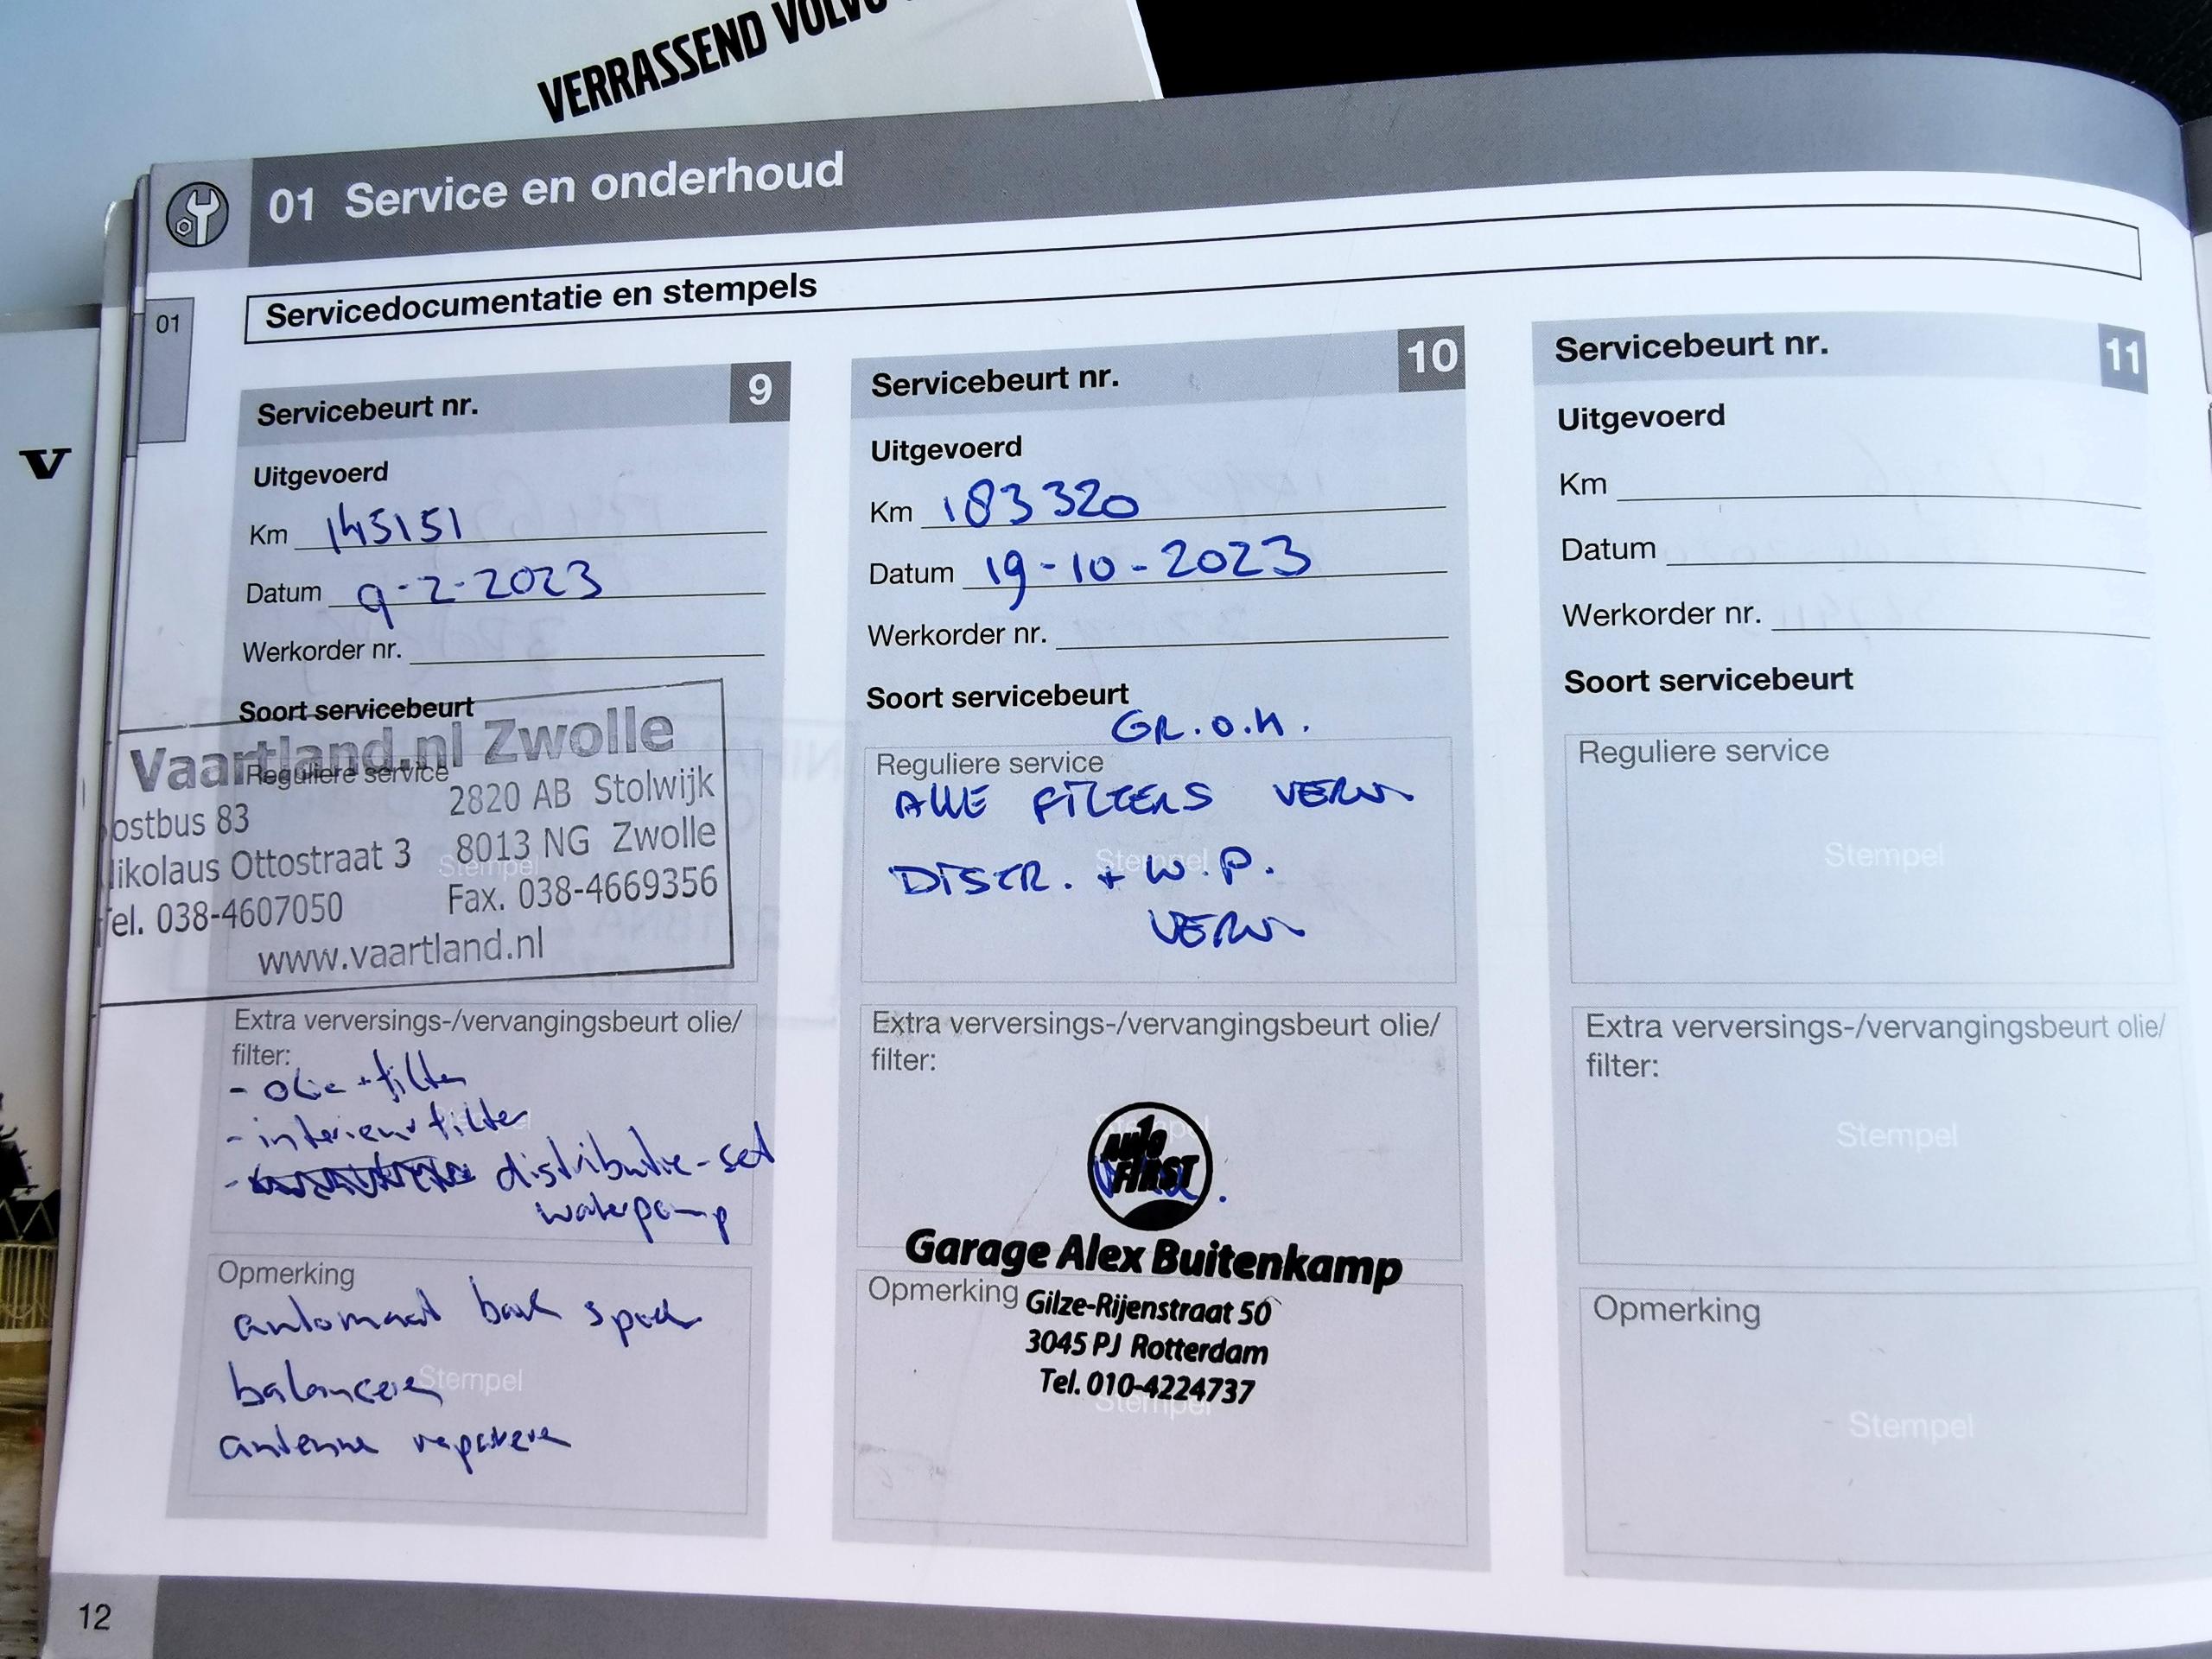 VERRASSEND VOLVO
01 Service en onderhoud
Servicedocumentatie en stempels
01
V
Servicebeurt nr. 9
Uitgevoerd
Km 145151
Datum 9-2-2023
Werkorder nr.
Soort servicebeurt
Vaartland.nl Zwolle
Reguliere service
ostbus 83 2820 AB Stolwijk
ikolaus Ottostraat 3 8013 NG Zwolle
Stempel
Tel. 038-4607050 Fax. 038-4669356
www.vaartland.nl
Extra verversings-/vervangingsbeurt olie/
filter:
- olie + filter
- interieurfilter
- distributie-set
waterpomp
Opmerking
automaat bak spoelen
balanceren
Stempel
antenne repareren
Servicebeurt nr. 10
Uitgevoerd
Km 183320
Datum 19-10-2023
Werkorder nr.
Soort servicebeurt
GR.O.H.
Reguliere service
ALLE FILTERS VERV
Stempel
DISTR. + W.P.
VERV
Extra verversings-/vervangingsbeurt olie/
filter:
Stempel
AUTO
FIRST
Garage Alex Buitenkamp
Opmerking
Gilze-Rijenstraat 50
3045 PJ Rotterdam
Tel. 010-4224737
Stempel
Servicebeurt nr. 11
Uitgevoerd
Km
Datum
Werkorder nr.
Soort servicebeurt
Reguliere service
Stempel
Extra verversings-/vervangingsbeurt olie/
filter:
Stempel
Opmerking
Stempel
12